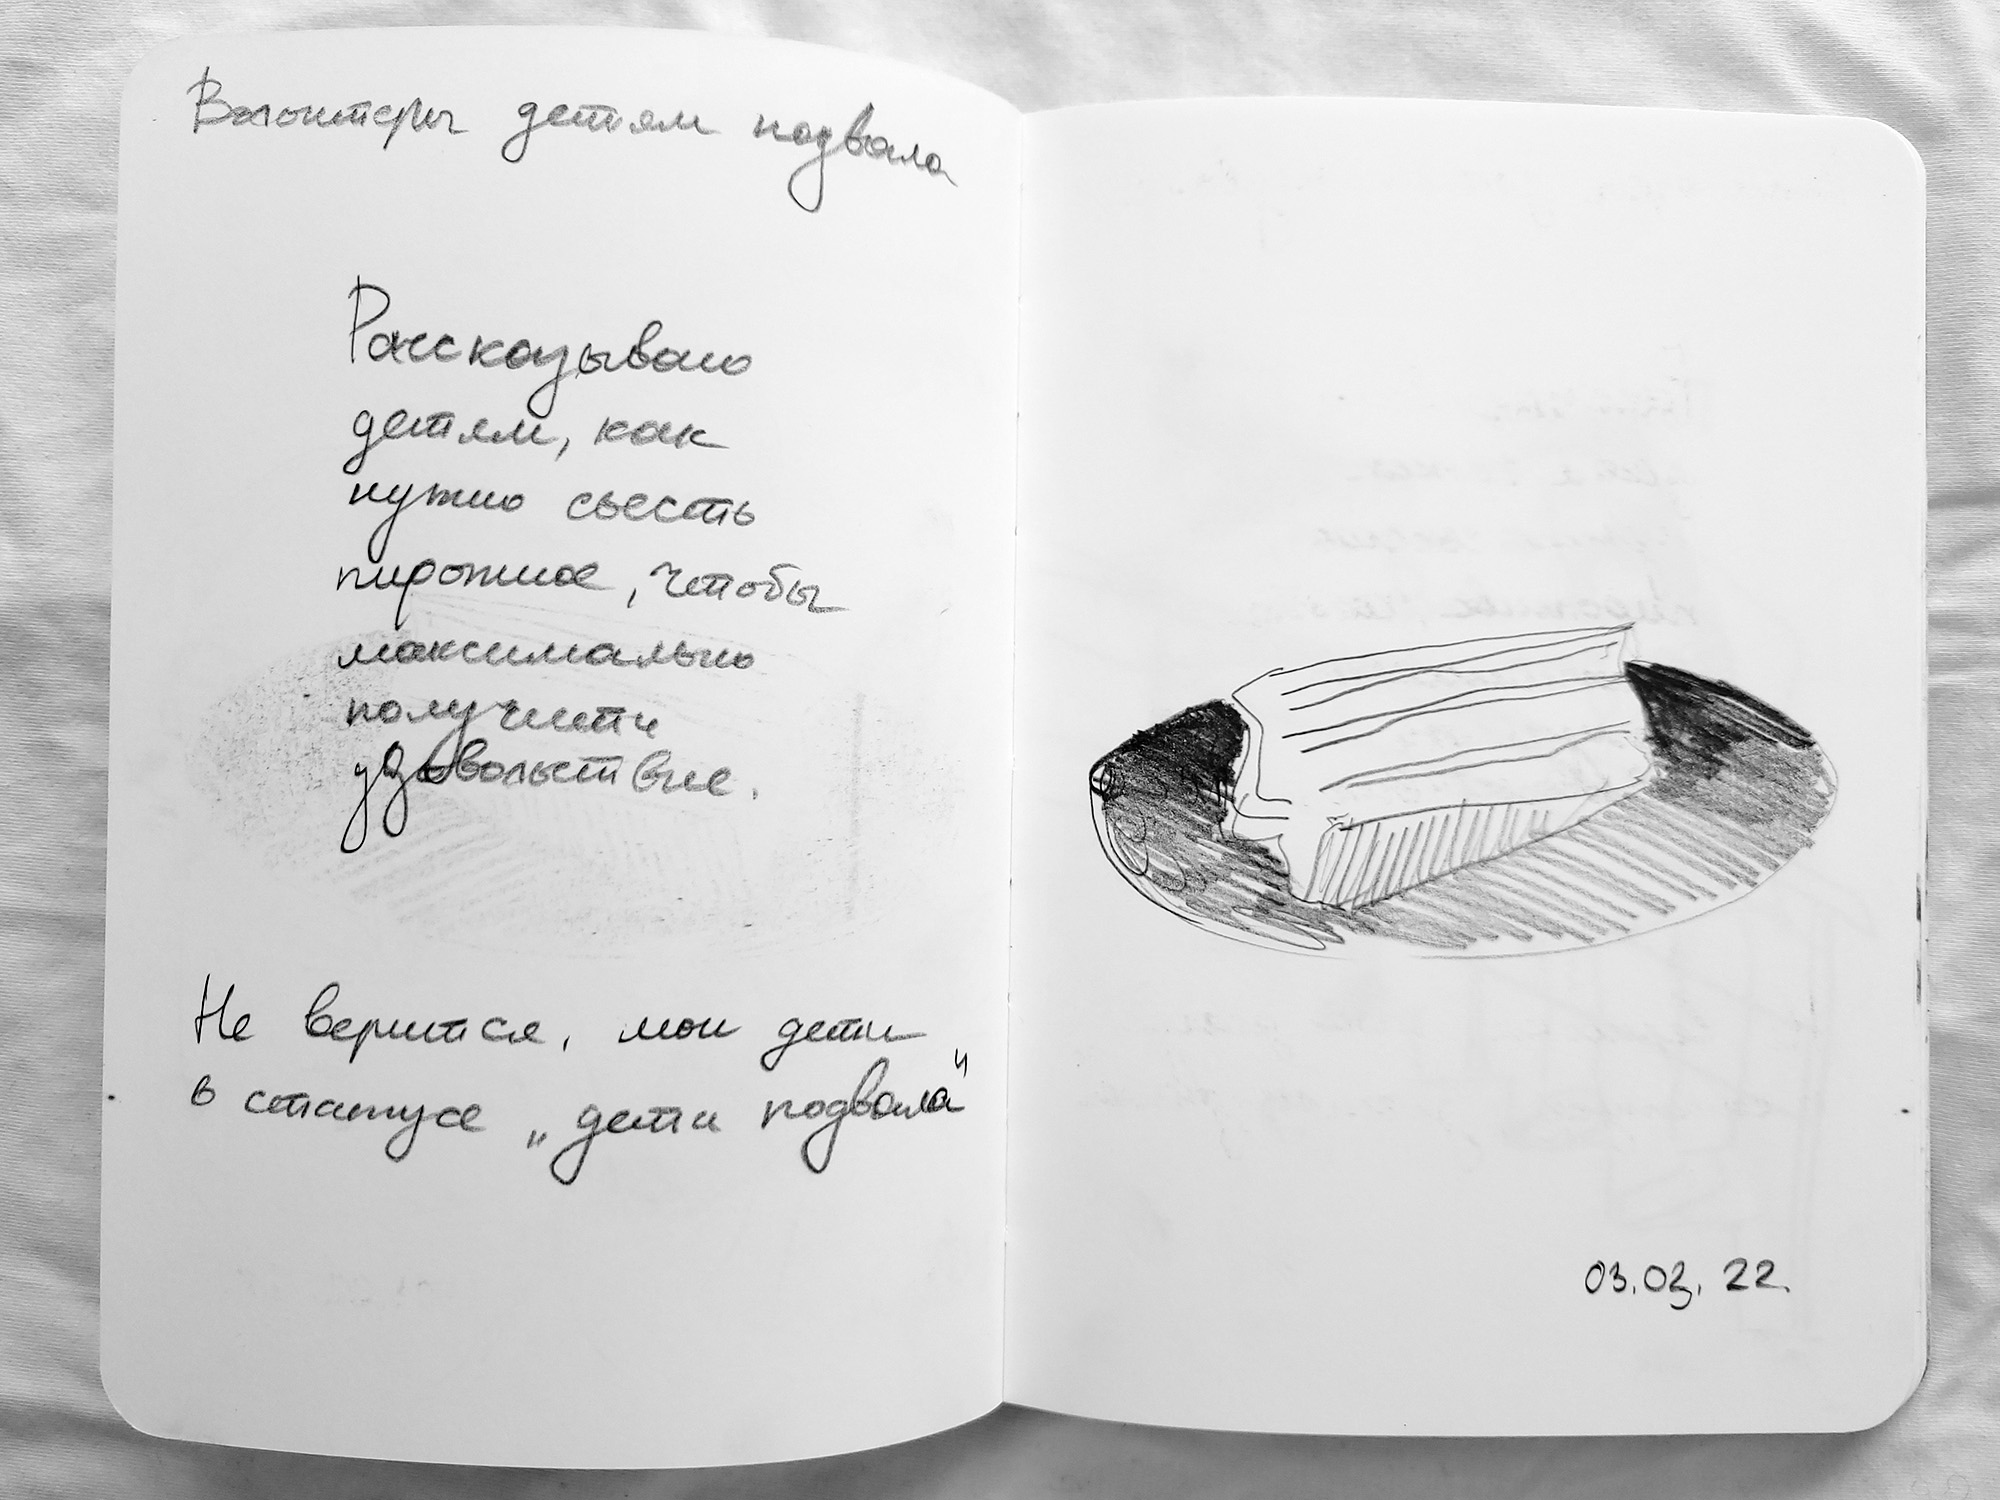 Волонтеры детям подвала
Рассказываю
детям, как
нужно сьесть
пирожное, чтобы
максимально
получить
удовольствие.
Не верится, мои дети
в статусе „дети подвала"
03.03.22